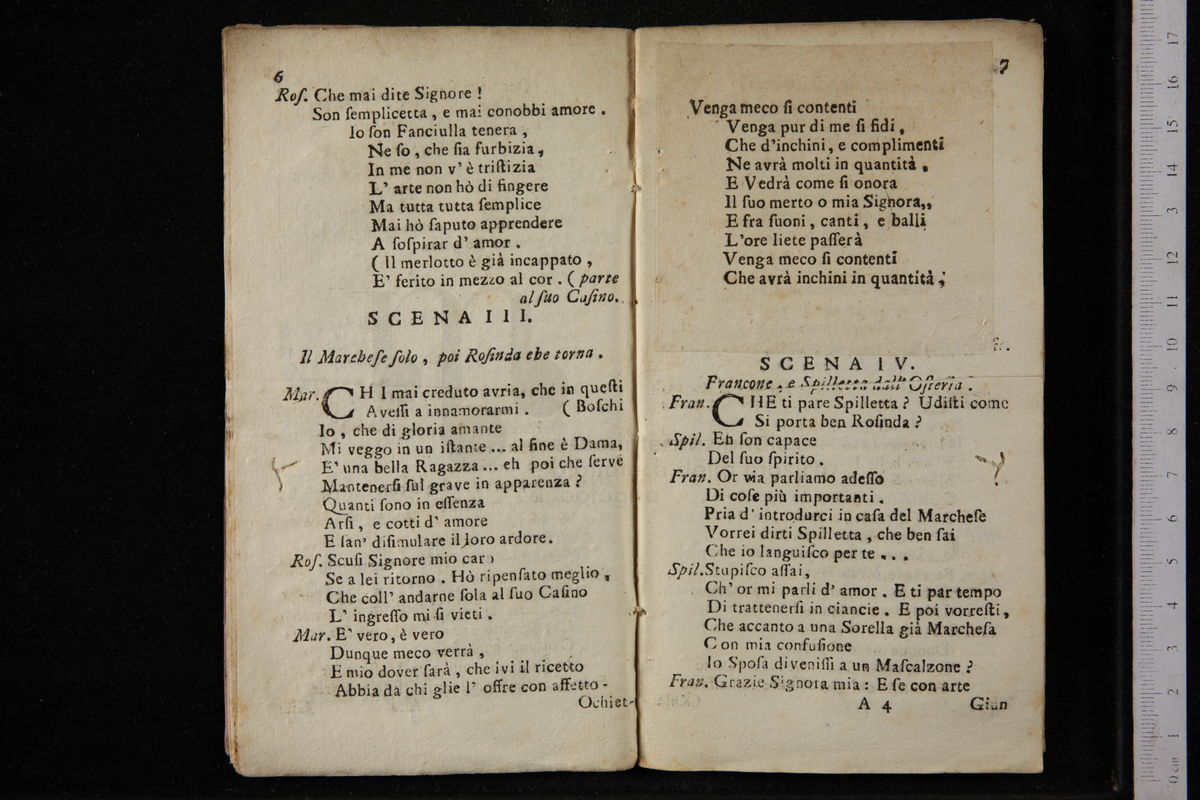 6
Roſ. Che mai dite Signore !
Son ſemplicetta , e mai conobbi amore .
Io ſon Fanciulla tenera ,
Ne ſo , che ſia furbizia ,
In me non v' è triſtizia
L' arte non hò di fingere
Ma tutta tutta ſemplice
Mai hò ſaputo apprendere
A ſoſpirar d' amor .
( Il merlotto è già incappato ,
E' ferito in mezzo al cor . ( parte
al ſuo Caſino.
SCENA III.
Il Marcheſe ſolo , poi Roſinda che torna .
Mar. CH I mai creduto avria, che in queſti
Aveſſi a innamorarmi . ( Boſchi
Io , che di gloria amante
Mi veggo in un iſtante ... al fine è Dama,
E' una bella Ragazza ... eh poi che ſerve
Mantenerſi ſul grave in apparenza ?
Quanti ſono in eſſenza
Arſi , e cotti d' amore
E ſan' diſimulare il loro ardore.
Roſ. Scuſi Signore mio caro
Se a lei ritorno . Hò ripenſato meglio ,
Che coll' andarne ſola al ſuo Caſino
L' ingreſſo mi ſi vieti .
Mar. E' vero , è vero
Dunque meco verrà ,
E mio dover ſarà , che ivi il ricetto
Abbia da chi glie l' offre con affetto -
Ochiet-
7
Venga meco ſi contenti
Venga pur di me ſi fidi ,
Che d'inchini, e complimenti
Ne avrà molti in quantità .
E Vedrà come ſi onora
Il ſuo merto o mia Signora,,
E fra ſuoni , canti , e balli
L'ore liete paſſerà
Venga meco ſi contenti
Che avrà inchini in quantità ;
SCENA IV.
Francone , e Spilletta dall' Oſteria .
Fran. CHE ti pare Spilletta ? Udiſti come
Si porta ben Roſinda ?
Spil. En ſon capace
Del ſuo ſpirito .
Fran. Or via parliamo adeſſo
Di coſe più importanti .
Pria d' introdurci in caſa del Marcheſe
Vorrei dirti Spilletta , che ben ſai
Che io languiſco per te . . .
Spil. Stupiſco aſſai,
Ch' or mi parli d' amor . E ti par tempo
Di trattenerſi in ciancie . E poi vorreſti ,
Che accanto a una Sorella già Marcheſa
Con mia confuſione
Io Spoſa diveniſſi a un Maſcalzone ?
Fran. Grazie Signora mia : E ſe con arte
A 4 Giun